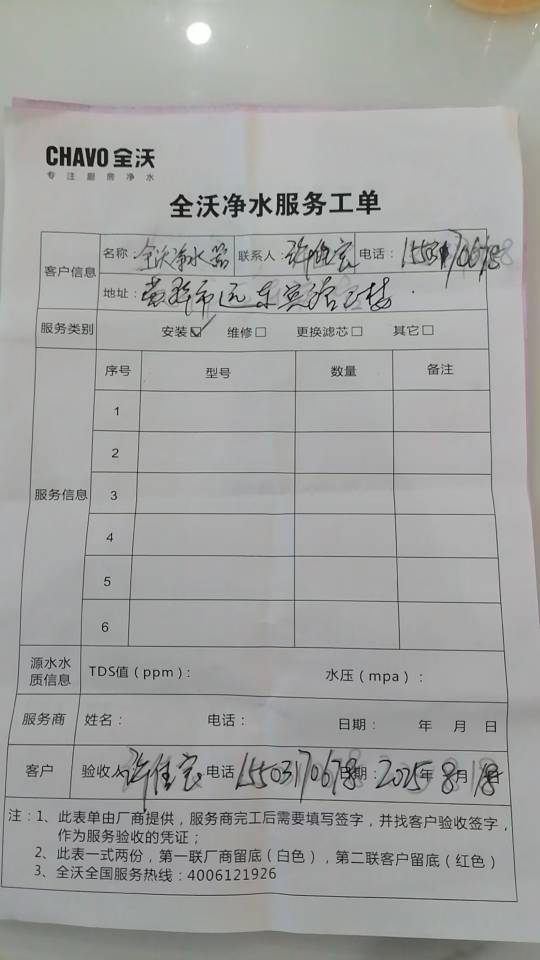 CHAVO 全沃
专注厨房净水
全沃净水服务工单
客户信息 名称：全沃净水器 联系人：许佳宝 电话：15503170678
地址：
服务类别 安装☑ 维修□ 更换滤芯□ 其它□
服务信息 序号 型号 数量 备注
1
2
3
4
5
6
源水水质信息 TDS值（ppm）： 水压（mpa）：
服务商 姓名： 电话： 日期： 年 月 日
客户 验收人 许佳宝 电话 15503170678 日期：2025年8月18
注：1、此表单由厂商提供，服务商完工后需要填写签字，并找客户验收签字，
作为服务验收的凭证；
2、此表一式两份，第一联厂商留底（白色），第二联客户留底（红色）
3、全沃全国服务热线：4006121926